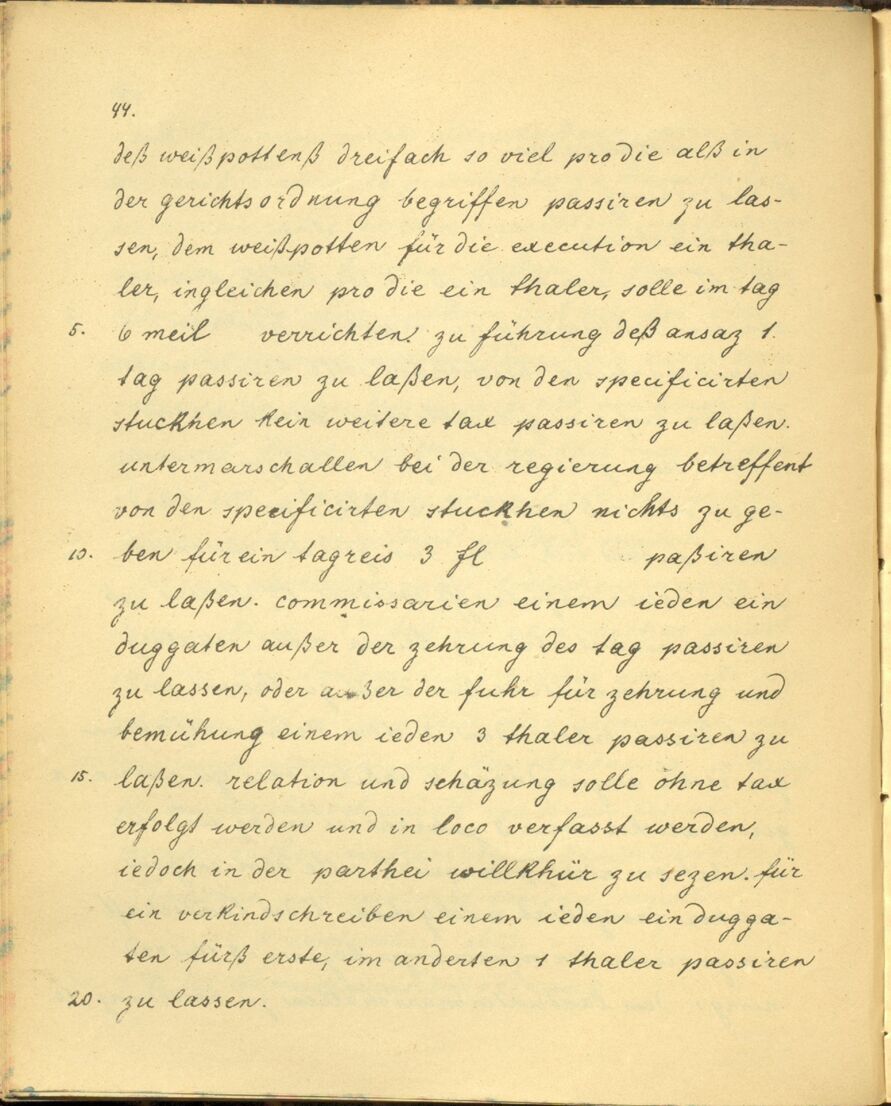 44.
deß weißpottenß dreifach so viel pro die alß in
der gerichtsordnung begriffen passiren zu las-
sen, dem weißpotten für die execution ein tha-
ler, ingleichen pro die ein thaler, solle im tag
5. 6 meil verrichten. zu führung deß ansaz 1.
tag passiren zu laßen, von den specificirten
stuckhen kein weitere tax passiren zu laßen.
untermarschallen bei der regierung betreffent
von den specificirten stuckhen nichts zu ge-
10. ben für ein tagreis 3 fl paßiren
zu laßen. commissarien einem ieden ein
duggaten außer der zehrung des tag passiren
zu lassen, oder außer der fuhr für zehrung und
bemühung einem ieden 3 thaler passiren zu
15. laßen. relation und schäzung solle ohne tax
erfolgt werden und in loco verfasst werden,
iedoch in der parthei willkhür zu sezen. für
ein verkindschreiben einem ieden ein dugga-
ten fürß erste, im anderten 1 thaler passiren
20. zu lassen.